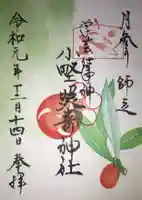 月参り 師走
学芸の神
小野照崎神社
令和元年十二月十四日 参拝